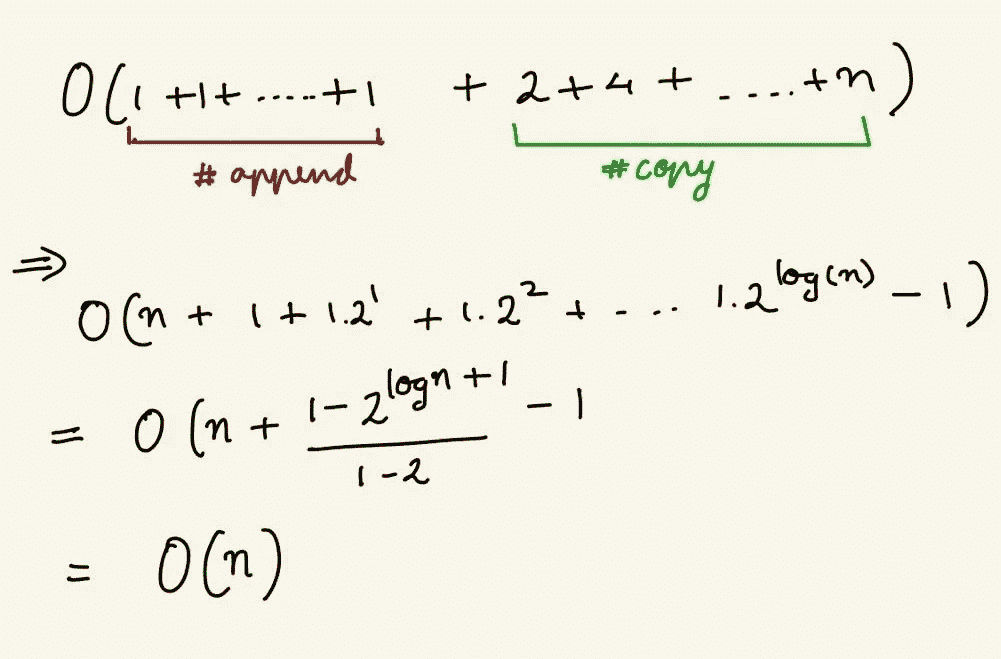 O(1 +1+ .....+1 + 2+4 + ....+n)
# append #copy
⇒
O(n + 1 + 1.2^1 + 1.2^2 + - ... 1.2^log(n) - 1)
= O (n + (1-2^(logn +1))/(1-2) - 1
= O(n)